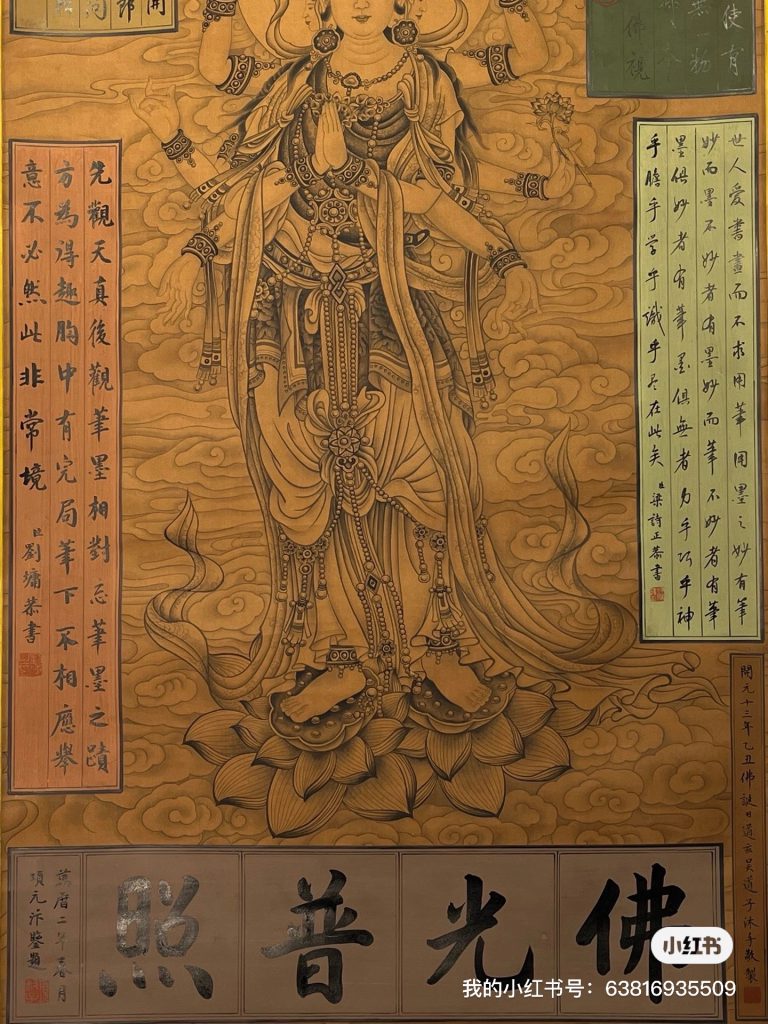 世人愛書畫而不求用筆用墨之妙有筆
妙而墨不妙者有墨妙而筆不妙者有筆
墨俱妙者有筆墨俱無者力乎巧乎神
乎膽乎学乎識乎尽在此矣
臣梁詩正恭書
先觀天真後觀筆墨相對忘筆墨之蹟
方為得趣胸中有完局筆下不相應舉
意不必然此非常境
臣劉墉恭書
開元十三年乙丑佛誕日道玄吳道子沐手敬製
佛光普照
萬曆二年春月
項元汴鑒題
小红书
我的小红书号：63816935509